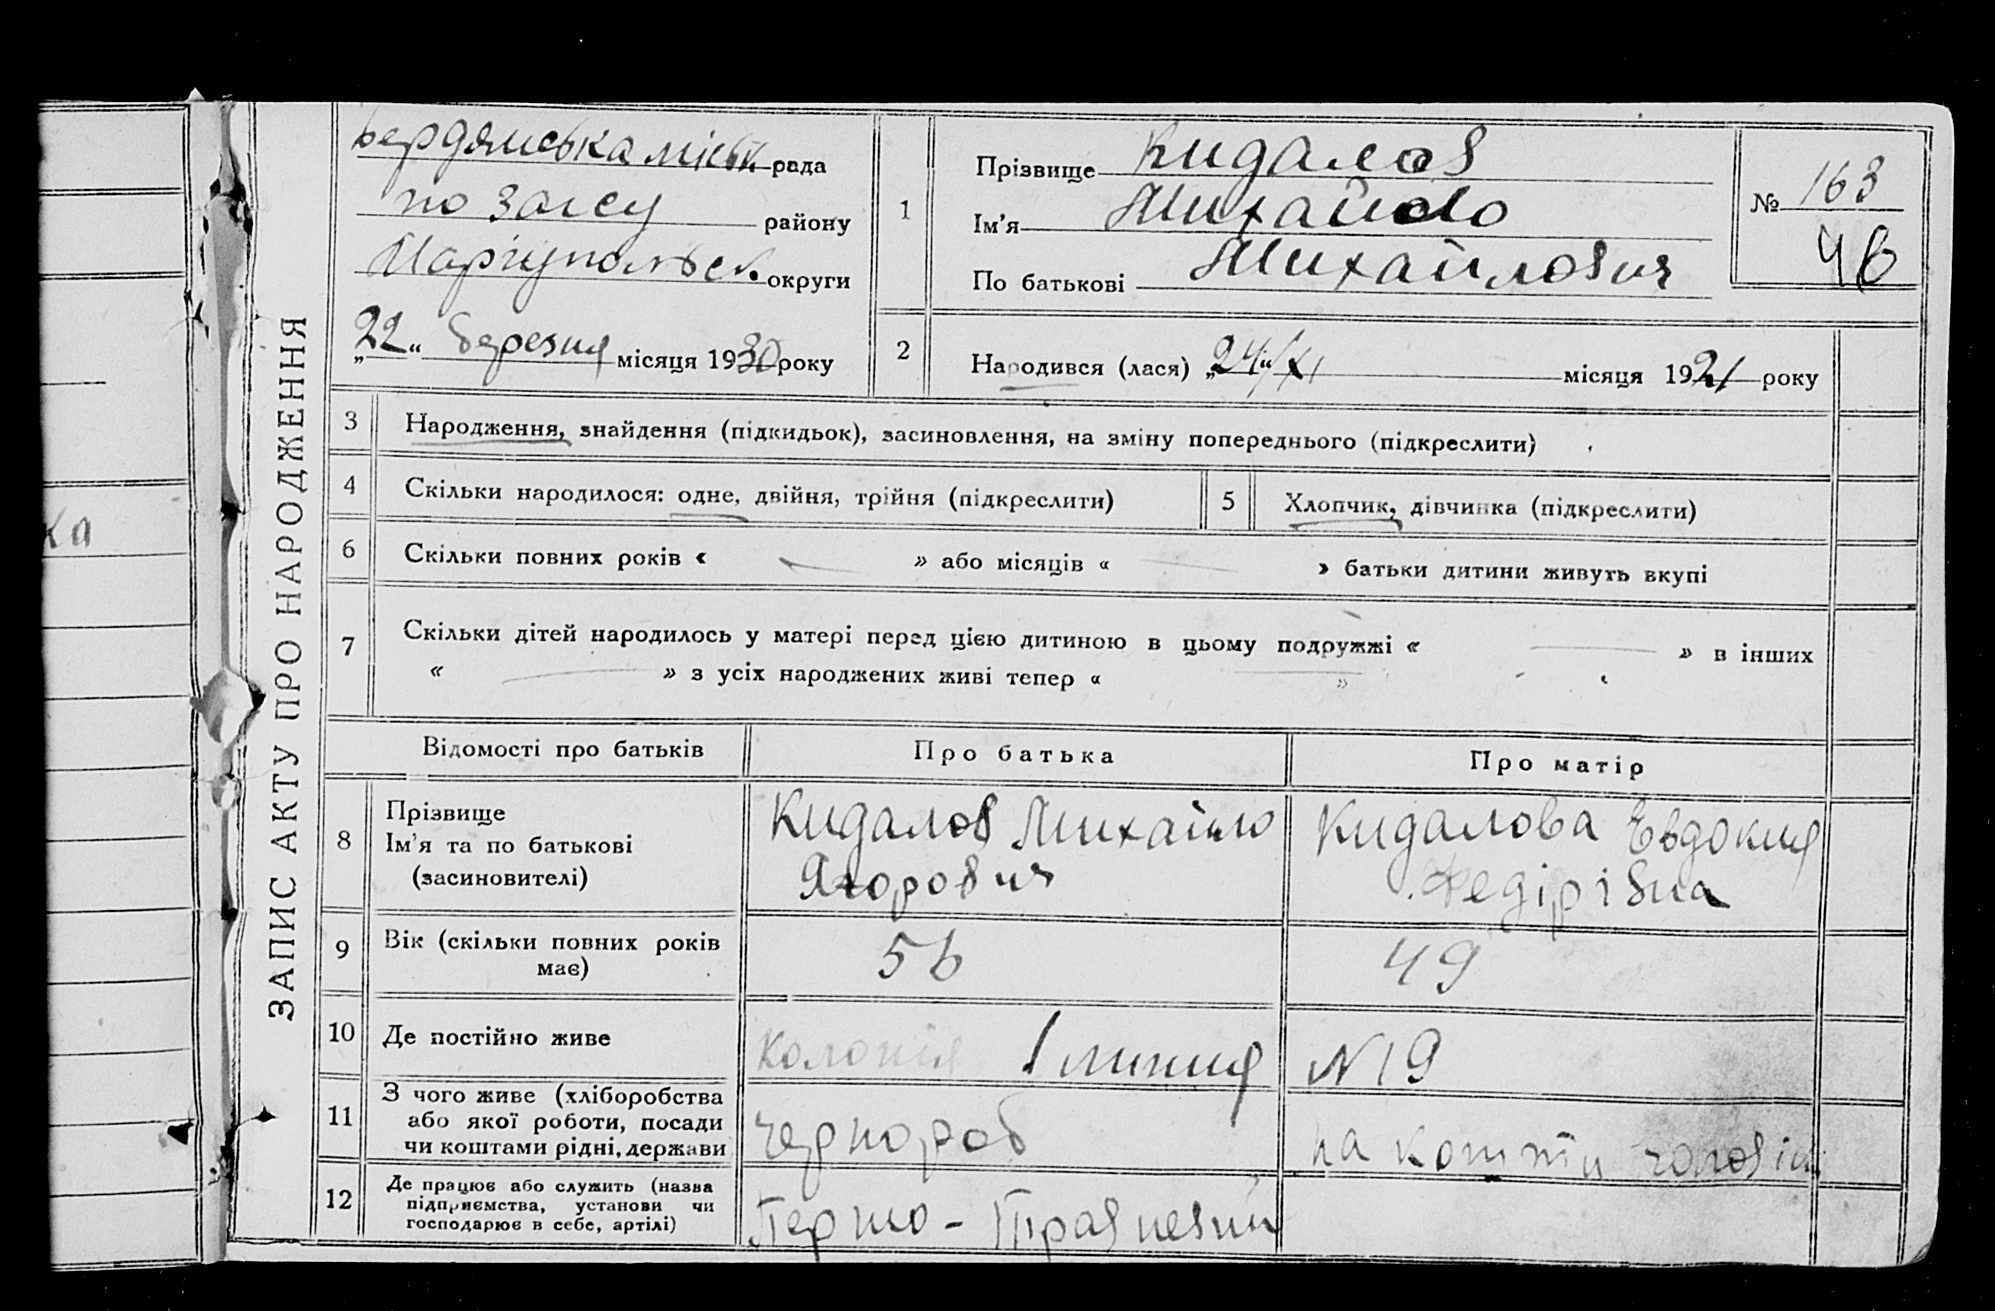 ка
ЗАПИС АКТУ ПРО НАРОДЖЕННЯ
Бердянська міськ. рада
по загсу району
Маріупольск. округи
„22“ березня місяця 1930 року
1
Прізвище Кидалов
Ім'я Михайло
По батькові Михайлович
№ 163
ЧВ
2
Народився (лася) „24“/XI місяця 1921 року
3
Народження, знайдення (підкидьок), засиновлення, на зміну попереднього (підкреслити)
4
Скільки народилося: одне, двійня, трійня (підкреслити)
5
Хлопчик, дівчинка (підкреслити)
6
Скільки повних років « — » або місяців « — » батьки дитини живуть вкупі
7
Скільки дітей народилось у матері перед цією дитиною в цьому подружжі « — » в інших
« — » з усіх народжених живі тепер « — »
Відомості про батьків
Про батька
Про матір
8
Прізвище
Ім'я та по батькові
(засиновителі)
Кидалов Михайло
Ягорович
Кидалова Евдокия
Федірівна
9
Вік (скільки повних років
має)
56
49
10
Де постійно живе
Колонія 1 линия
№19
11
З чого живе (хліборобства
або якої роботи, посади
чи коштами рідні, держави
чернороб
на кошти чоловіка
12
Де працює або служить (назва
підприємства, установи чи
господарює в себе, артілі)
Першо-Травневий